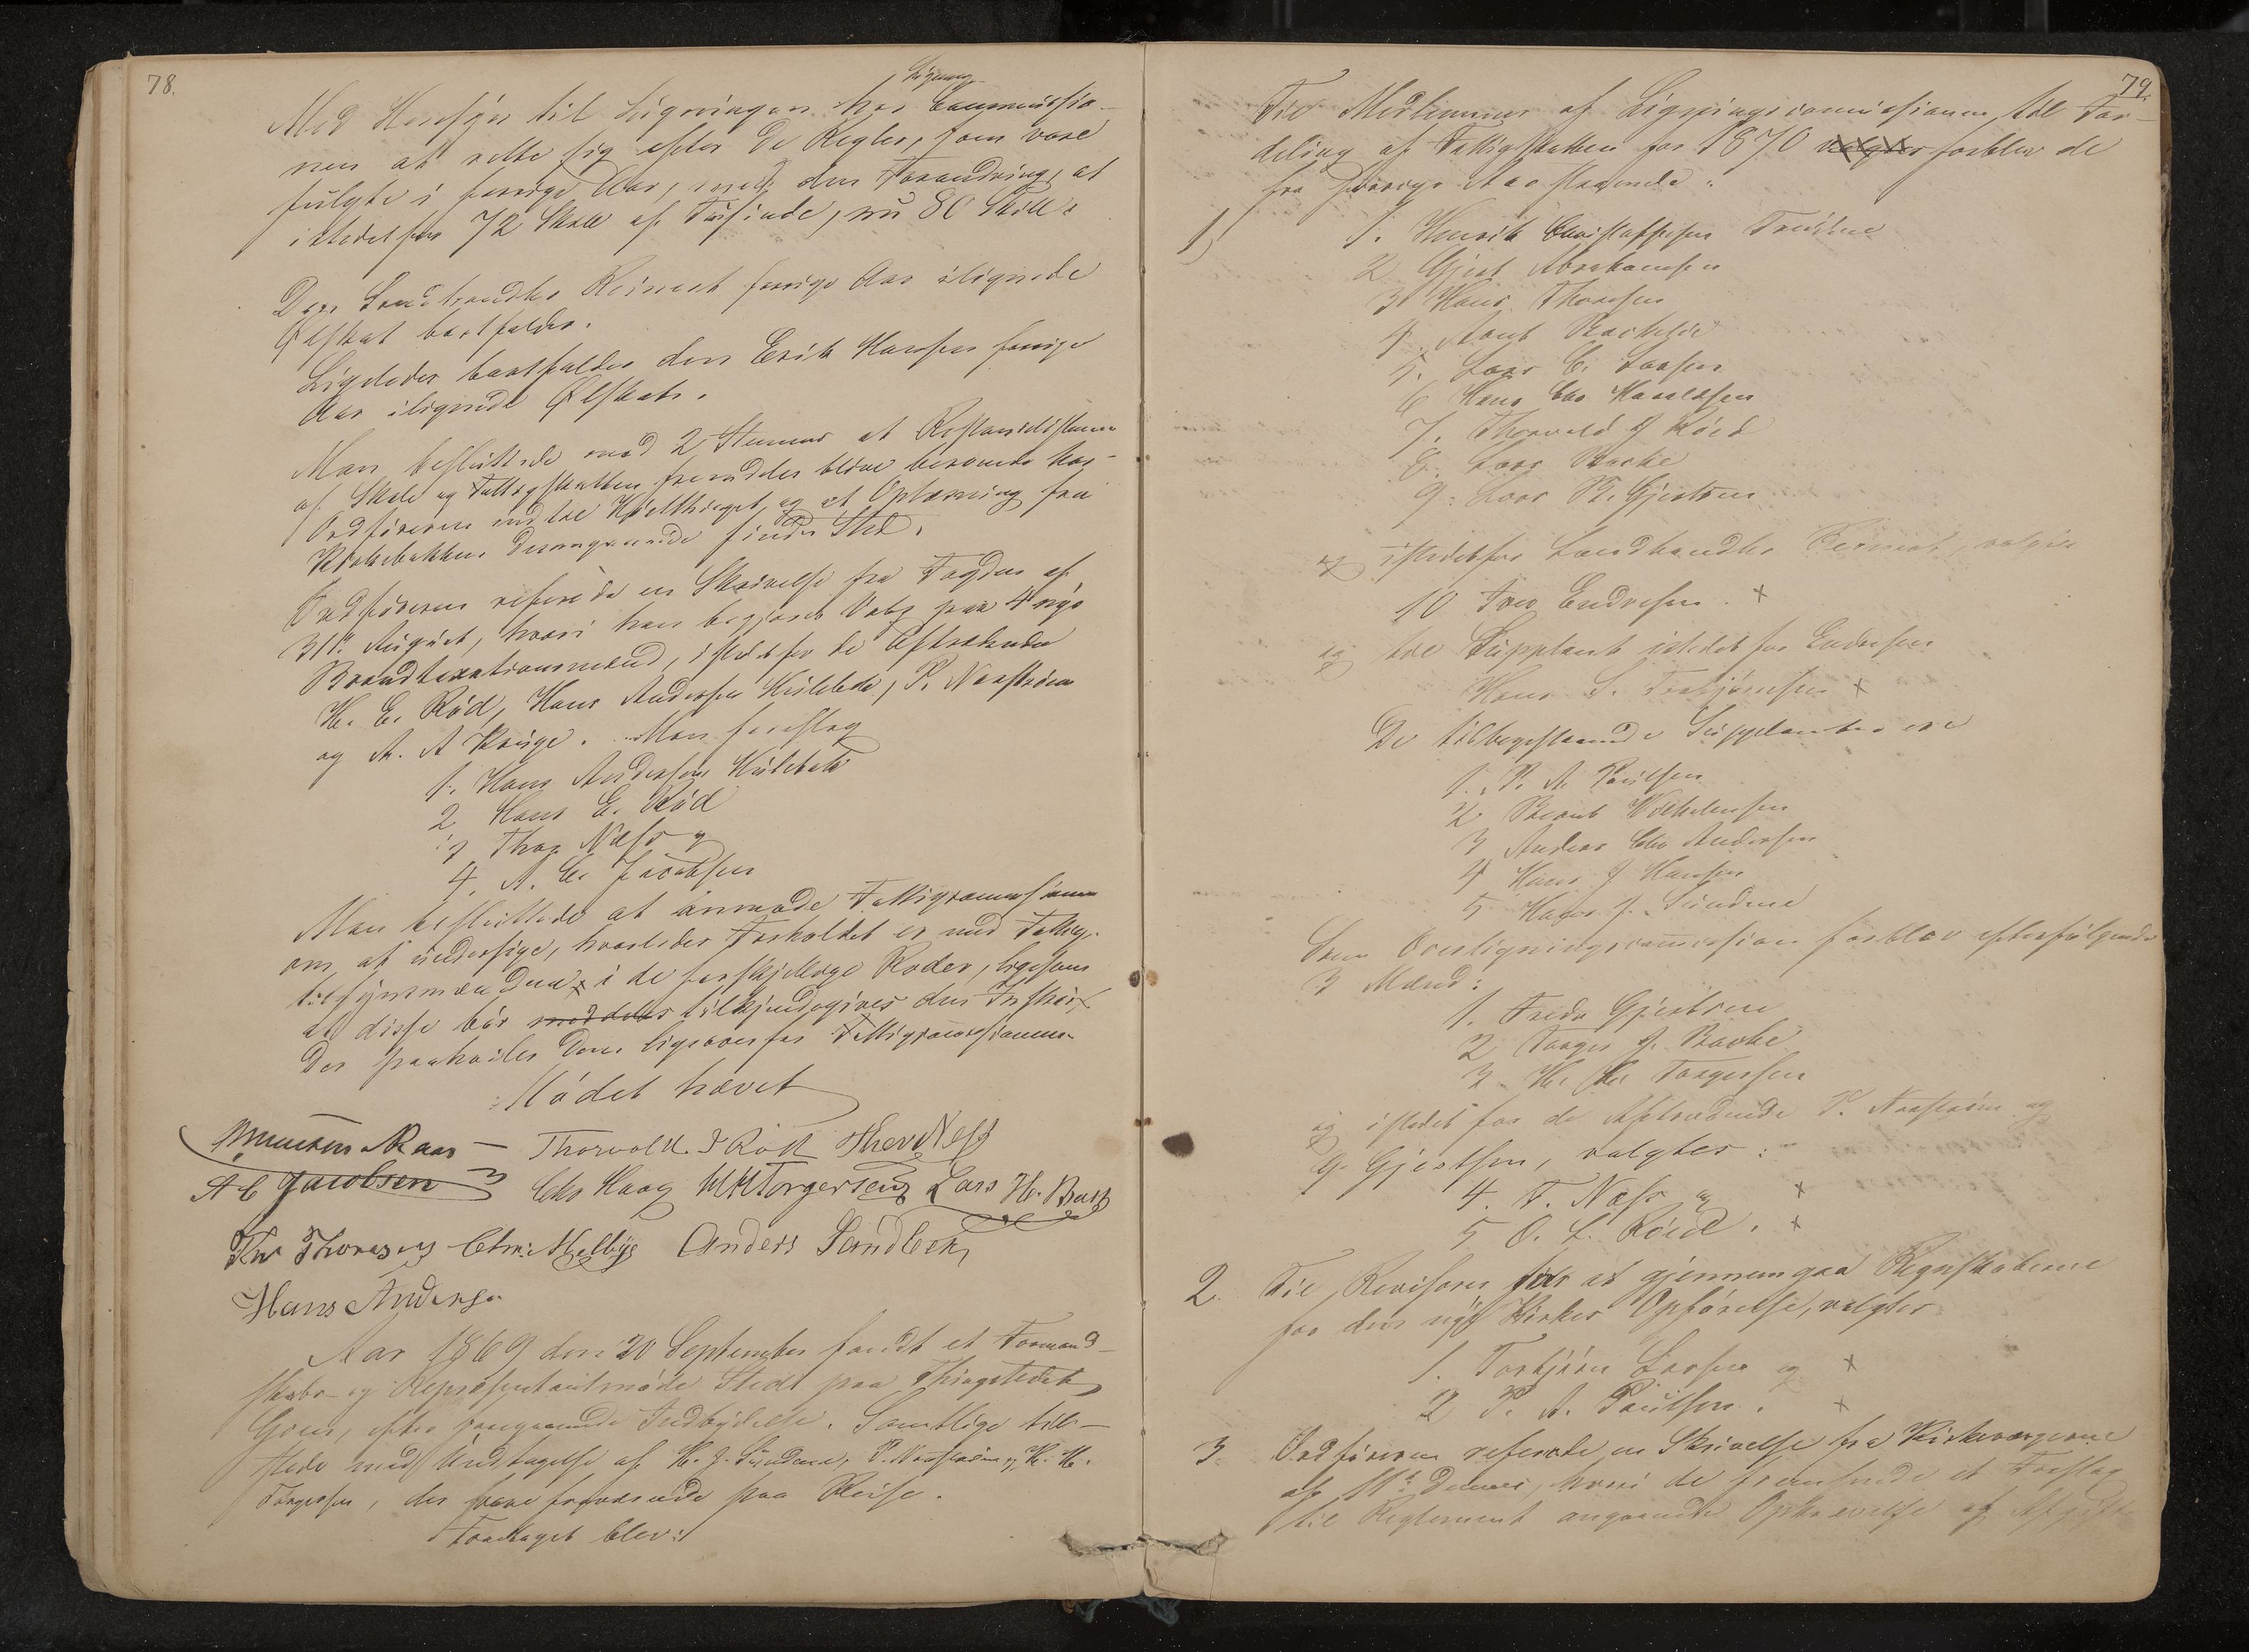 78.
Ligning-
Med Hensyn til Ligningen har Commissio-
nen at rette sig efter de Regler, som vare
fulgte i forrige Aar, med den Forandring, at
istedetfor 72 Skill af Tusinde, nu 80 Skill:
Den Landhandler Reinert forrige Aar ilignede
Ølskat bortfalder.
Ligeledes bortfalder den Erik Hansen forrige
Aar ilignede Ølskat.
Man besluttede med 2 Stemmer at Restancelisterne
af Skole og Fattigskatten fremdeles blive beroende hos
Ordføreren indtil Høstthinget, og at Oplæsning fra
Kirkebakken desangaaende finder Sted.
Ordføreren refererede en Skrivelse fra Fogden af
31te August, hvori han begjærer Valg paa 4 nye
Brandtaxationsmænd, istedetfor de Aftrædende
H. E. Röd, Hans Andersen Hulebak, P. Narström
og A. A Krüge. Man foreslog
1. Hans Andersen Hulebak
2 Hans E. Röd
3 Thor Næss og
4. A. C. Jacobsen
Man besluttede at anmode Fattigcommissionen
om at undersøge, hvorledes Forholdet er med Fattig-
tilsynsmændene i de forskjellige Roder, ligesom
at disse bør meddeles tilkjendegives den Instrux
der paahviler dem ligeoverfor Fattigcommissionen.
Mödet hævet
Thorvold J Röd Thor Næss
A C Jacobsen Chr Haag H H Torgersen Lars H. Bache
Thv Thoresen Chr: Melbye Anders Sundbek
Hans Andersen
Aar 1869 den 20 September fandt et Formand-
skabs- og Repræsentantmøde Sted paa Thingstedet
Groen, efter foregaaende Indbydelse. Samtlige til-
stede med Undtagelse af H. J. Sundene, P. Narström og H. H.
Torgersen, der vare fraværende paa Reise.
Foretaget blev:
79.
Til Medlemmer af Ligningscommissionen til For-
deling af Fattigskatten for 1870 valgtes forblev de
fra forrige Aar staaende:
1) 1. Henrik Christoffersen
2 Gjert Abrahamsen
3 Hans Thoresen
4. Bache
5. Lars C. Larsen
6 Hans Chr Haraldsen
7. Thorvald J Röed
8. Lars Bache
9. Lars B. Gjertsen
og istedetfor Landhandler Reinert, valgtes
10 Iver Endresen. x
og til Suppleant istedet for Endresen
Hans S. Torbjörnsen x
De tilbagestaaende Suppleanter ere
1. P. A. Paulsen
2 Bernt Wilhelmsen
3 Anders Chr Andersen
4 Hans J Hansen
5 Hans J. Sundene
Som Overligningscommission forblev efterfølgende
3 Mænd:
1. Fredr Gjertsen
2 Torger J. Bache
3 H. H. Torgersen
og istedet for de Aftrædende P. Narström og
G. Gjertsen, valgtes:
4. T. Næss og x
5 O. L. Röed. x
2. Til Revisorer for at gjennemgaa Regnskaberne
for den nye Kirkes Opførelse, valgtes
1. Torbjörn Larsen og x
2 P. A. Paulsen. x
3. Ordføreren refererte en Skrivelse fra Kirkeværgerne
af 11te Dennes, hvori de fremsende et Forslag
til Reglement angaaende Opkrævelse af Afgift